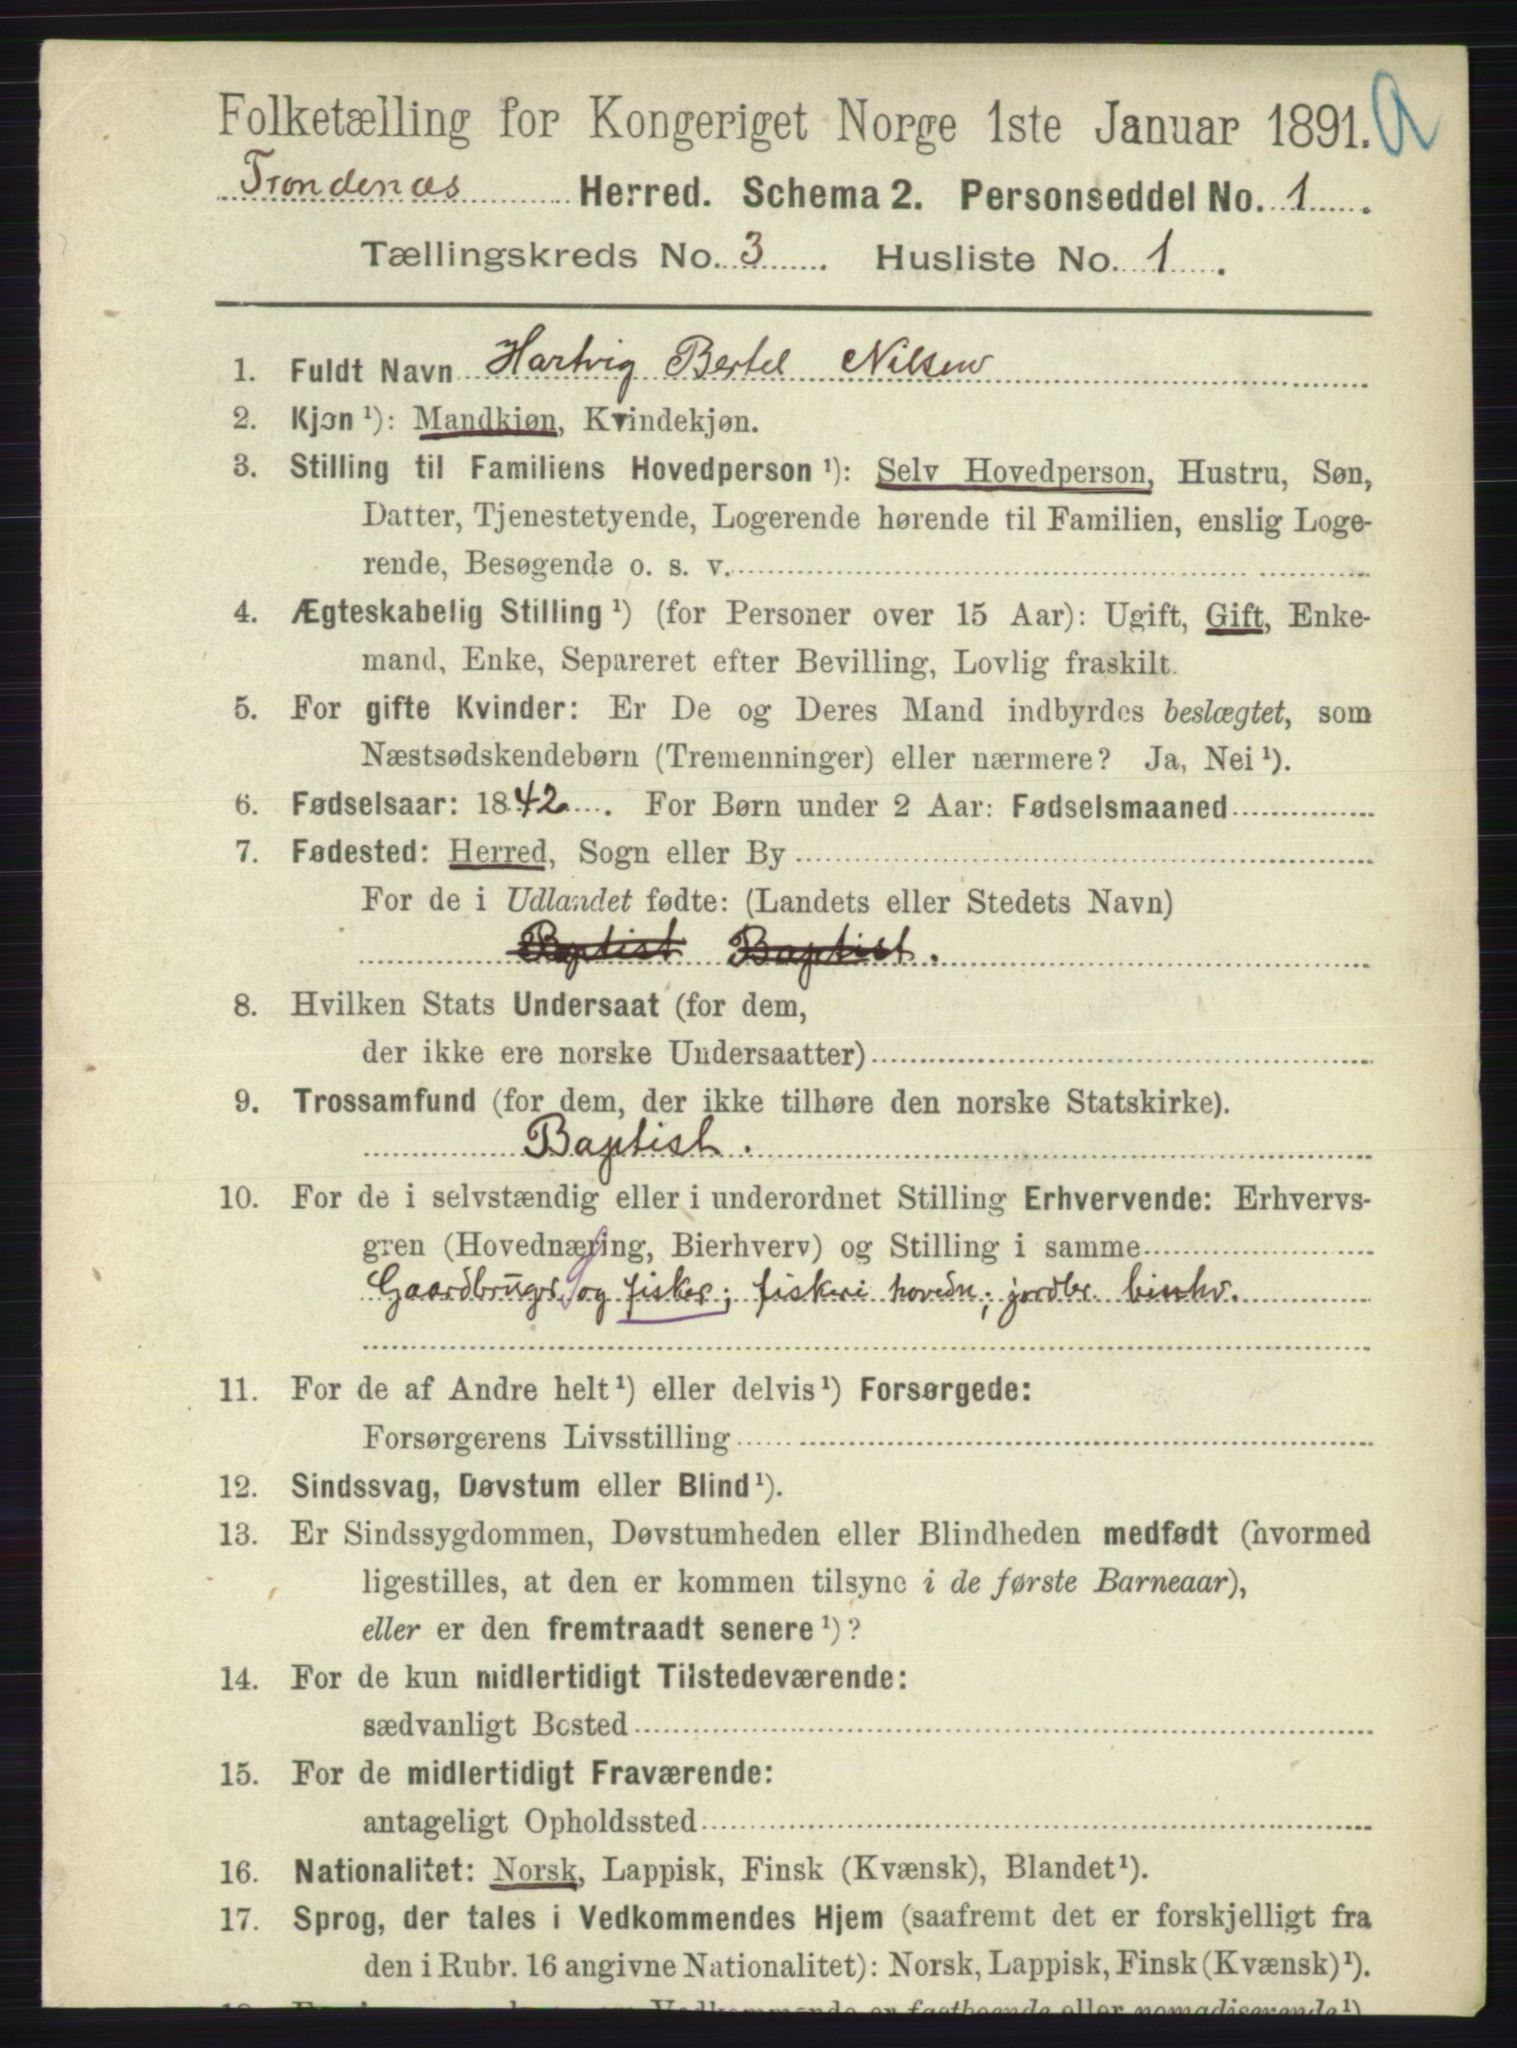 Folketælling for Kongeriget Norge 1ste Januar 1891. a
Trondenæs Herred. Schema 2. Personseddel No. 1.
Tællingskreds No. 3. Husliste No. 1.
1. Fuldt Navn Hartvig Bertel Nilsen
2. Kjøn ¹): Mandkjøn, Kvindekjøn.
3. Stilling til Familiens Hovedperson ¹): Selv Hovedperson, Hustru, Søn,
Datter, Tjenestetyende, Logerende hørende til Familien, enslig Loge-
rende, Besøgende o. s. v.
4. Ægteskabelig Stilling ¹) (for Personer over 15 Aar): Ugift, Gift, Enke-
mand, Enke, Separeret efter Bevilling, Lovlig fraskilt.
5. For gifte Kvinder: Er De og Deres Mand indbyrdes beslægtet, som
Næstsødskendebørn (Tremenninger) eller nærmere? Ja, Nei ¹).
6. Fødselsaar: 1842. For Børn under 2 Aar: Fødselsmaaned
7. Fødested: Herred, Sogn eller By
For de i Udlandet fødte: (Landets eller Stedets Navn)
Baptist Baptist.
8. Hvilken Stats Undersaat (for dem,
der ikke ere norske Undersaatter)
9. Trossamfund (for dem, der ikke tilhøre den norske Statskirke).
Baptist.
10. For de i selvstændig eller i underordnet Stilling Erhvervende: Erhvervs-
gren (Hovednæring, Bierhverv) og Stilling i samme
Gaardbruger og fisker; fiskeri hovedn; jordbr. bierhv.
11. For de af Andre helt ¹) eller delvis ¹) Forsørgede:
Forsørgerens Livsstilling
12. Sindssvag, Døvstum eller Blind ¹).
13. Er Sindssygdommen, Døvstumheden eller Blindheden medfødt (hvormed
ligestilles, at den er kommen tilsyne i de første Barneaar),
eller er den fremtraadt senere ¹)?
14. For de kun midlertidigt Tilstedeværende:
sædvanligt Bosted
15. For de midlertidigt Fraværende:
antageligt Opholdssted
16. Nationalitet: Norsk, Lappisk, Finsk (Kvænsk), Blandet ¹).
17. Sprog, der tales i Vedkommendes Hjem (saafremt det er forskjelligt fra
den i Rubr. 16 angivne Nationalitet): Norsk, Lappisk, Finsk (Kvænsk) ¹).
Vedkommende er fastboende eller nomadiserende ¹)